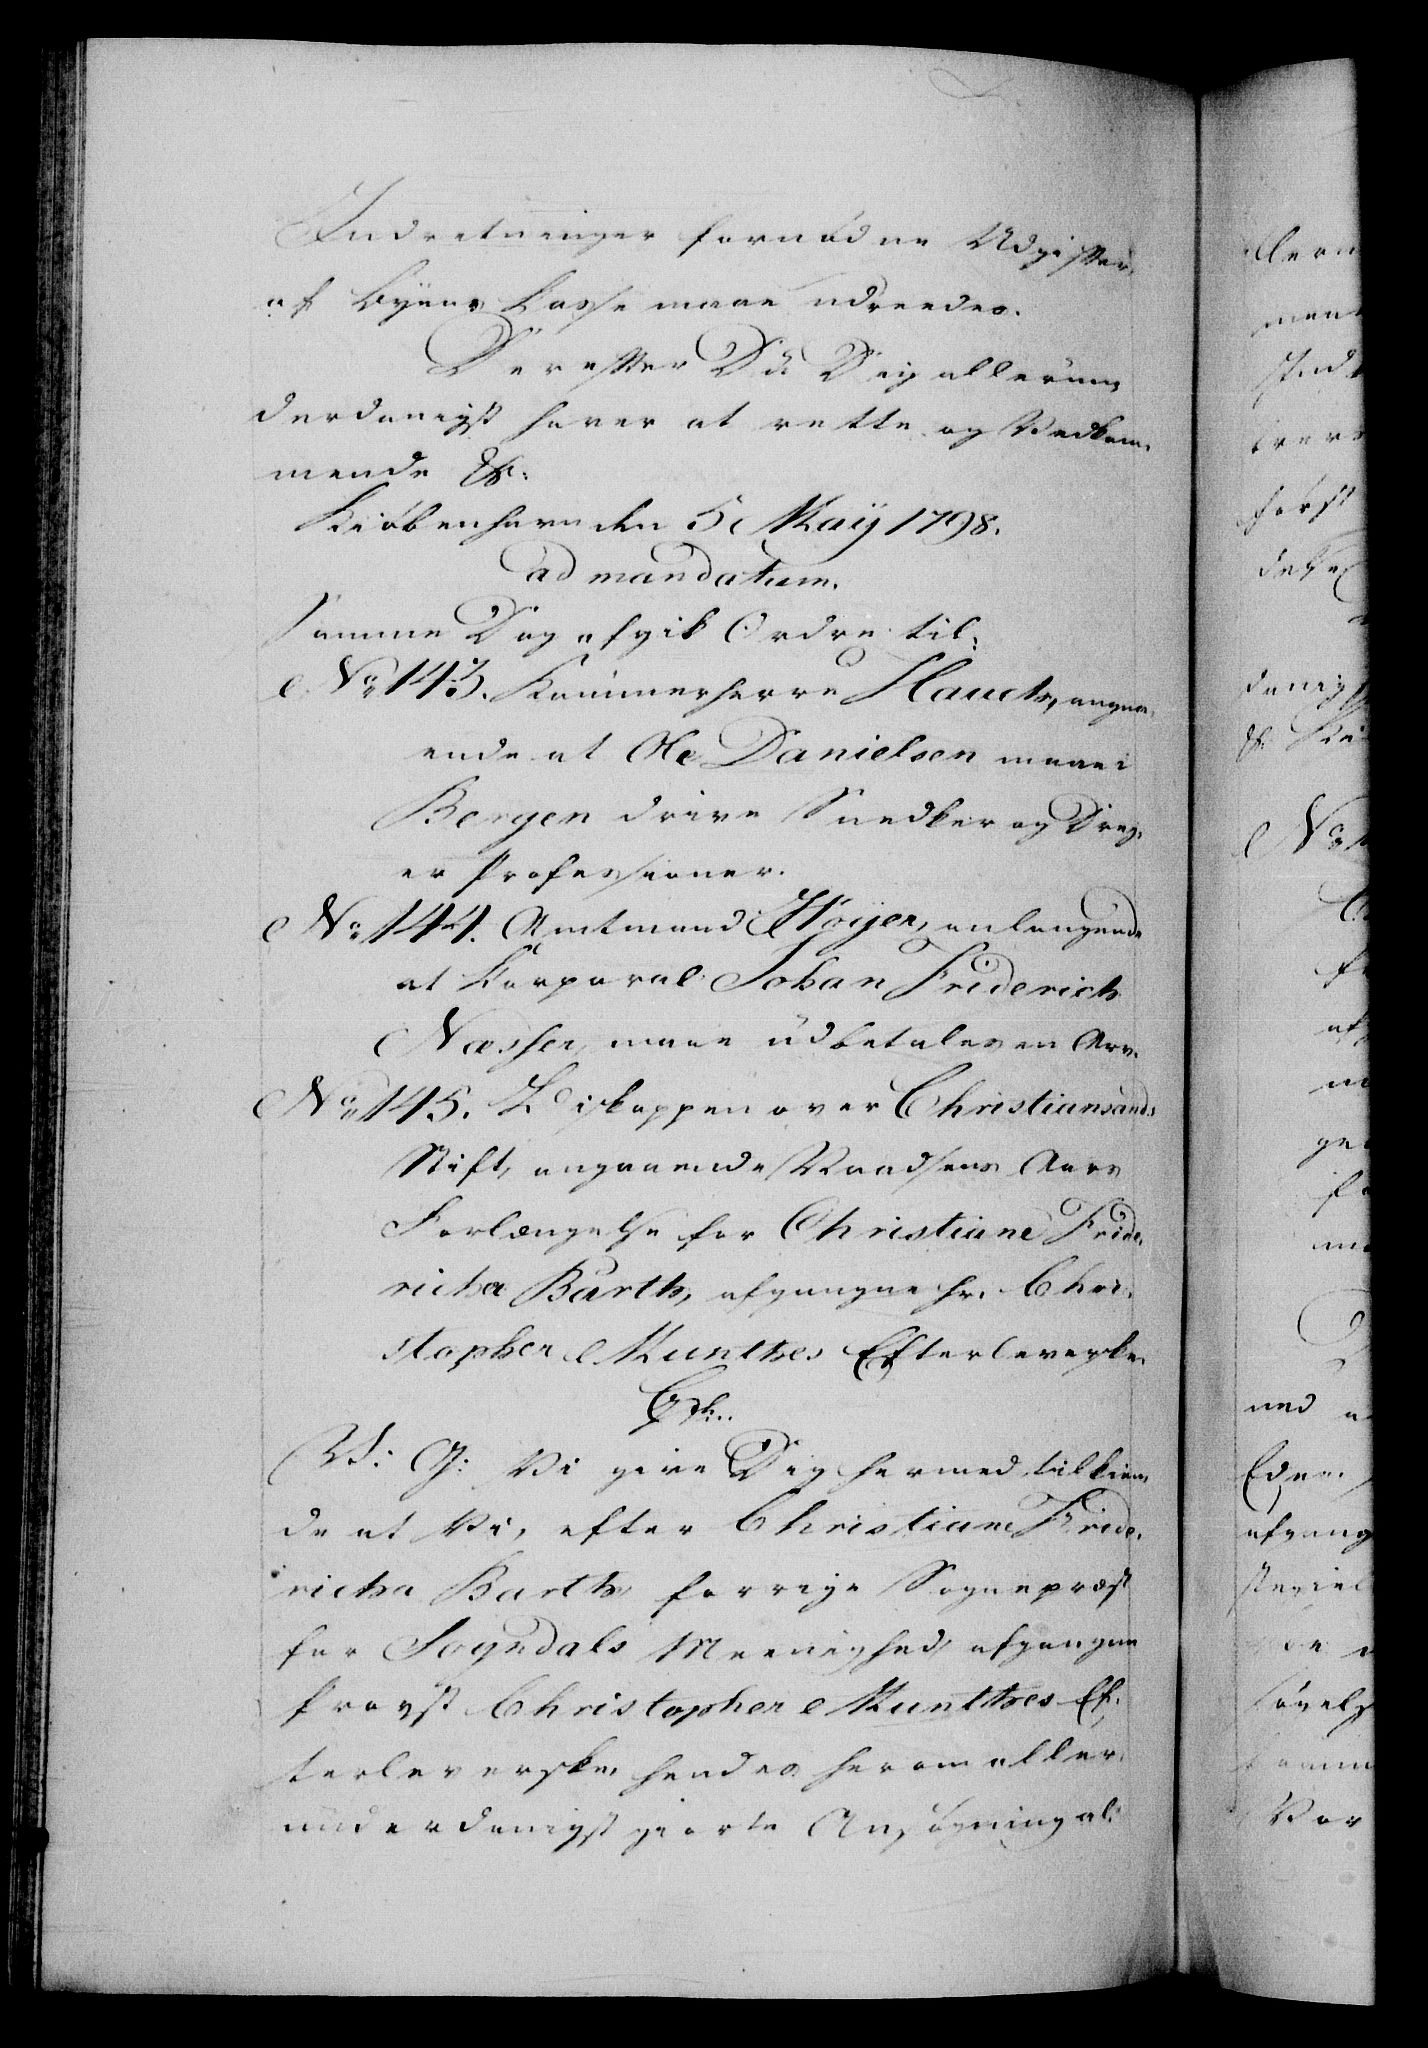 Indretninger fornødne Udgifter,
af Byens Casse maae udreedes.
Derefter Du Dig allerun-
derdanigst haver at rette og Vedkom-
mende &c:
Kiøbenhavn den 5 Maij 1798.
ad mandatum.
Samme Dag afgik Ordre til:
No 143. Kammerherre Hauch, angaa-
ende at Ole Danielsen maae i
Bergen drive Snedker og Drey-
er Professioner.
No 144. Amtmand Høyer, anlangende
at Korporal Johan Friderich
Næsser, maae udbetales en Arv.
No 145. Biskoppen over Christiansands
Stift, angaaende Naadsens Aars
Forlængelse for Christiane Fride-
richa Barth, afgangne Hr. Chri-
stopher Munthes Efterleverske.
C 7h..
V: G: Vi give Dig hermed tilkien-
de at Vi, efter Christiane Fride-
richa Barth, forrige Sognepræst
for Sogndals Meenighed, afgangne
Provst Christopher Munthes Ef-
terleverske, hendes herom aller-
underdanigst giorte Ansøgning al-